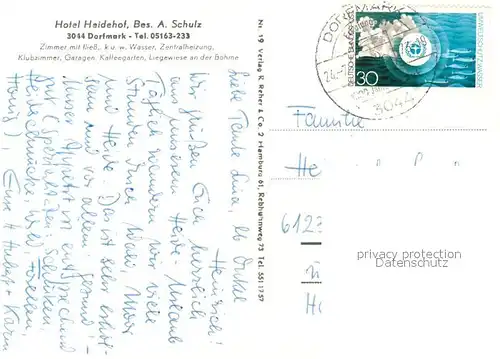 Hotel Heidehof, Bes. A. Schulz
3044 Dorfmark - Tel. 05163-233
Zimmer mit fließ. k. u. w. Wasser, Zentralheizung,
Klubzimmer, Garagen, Kaffeegarten, Liegewiese an der Böhme
Nr. 19 Verlag R. Reher & Co. 2 Hamburg 61, Rebhuhnweg 73 Tel. 551 17 57
DORFMARK
3044
DEUTSCHE BUNDESPOST
30
UMWELTSCHUTZ WASSER
Liebe Tante Lina, lb. Onkel
Heinrich!
Wir grüßen Euch herzlich
aus unserem Heide-Urlaub
Täglich wandern wir viele
Stunden durch Wald, Moor
und Heide. Das ist sehr erhol-
sam und vor allem gesund!
Unser Appetit ist entsprechend
gut (Spezialitäten: Schinken,
Heidschnucke, Wild, Forellen,
Honig). Eure
Karin
Familie
He
6123
privacy protection
VAMPEL